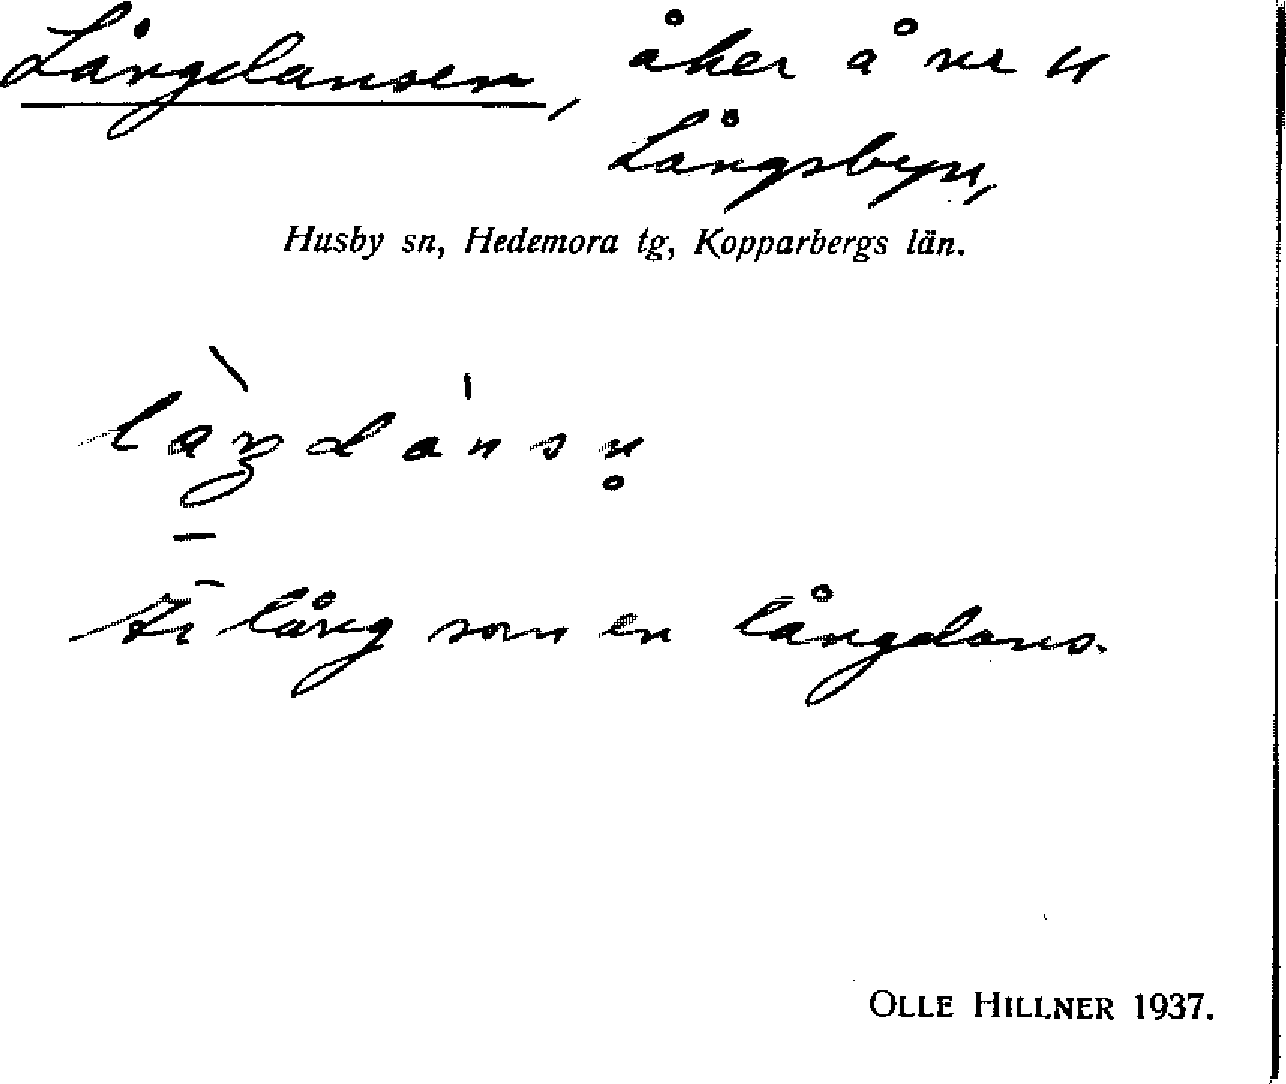 Långdansen, åker å nr 4
Långsbyn,
Husby sn, Hedemora tg, Kopparbergs län.
làŋdánsn̥
Är lång som en långdans.
OLLE HILLNER 1937.